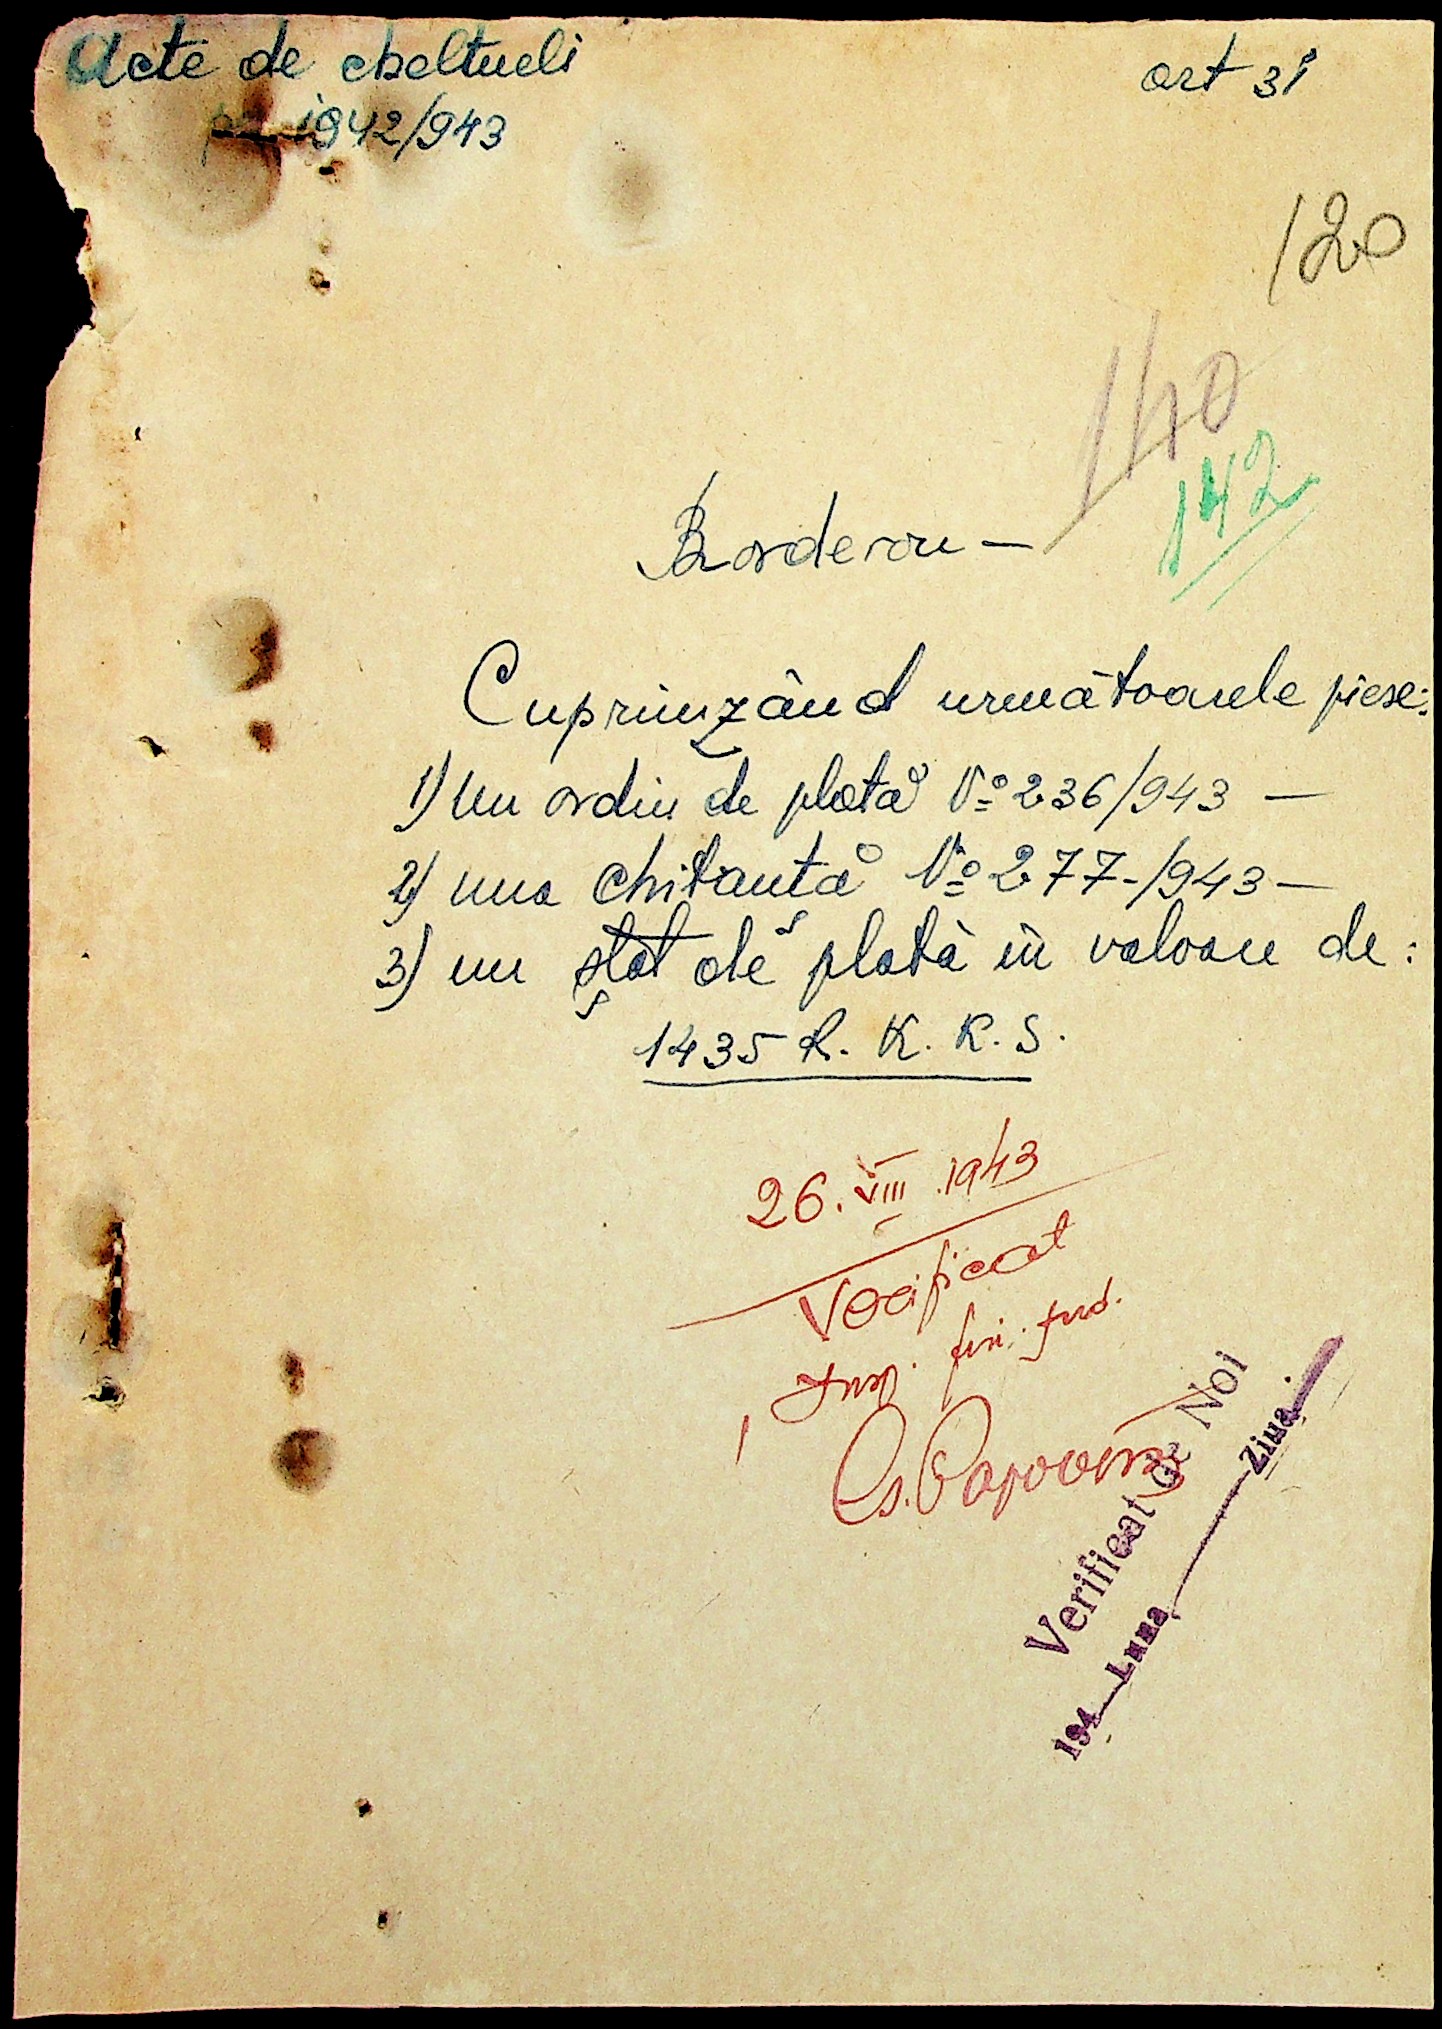 Acte de cheltueli
art 31
pe 1942/943
120
140
142
Borderou —
Cuprinzând următoarele piese:
1) Un ordin de plată № 236/943 —
2) una chitanță № 277-/943 —
3) un ștat de plată în valoare de:
1435 R. K. K. S.
26. VIII. 1943
Verificat
Insp. fin. jud.
Verificat de Noi
194 Luna Ziua